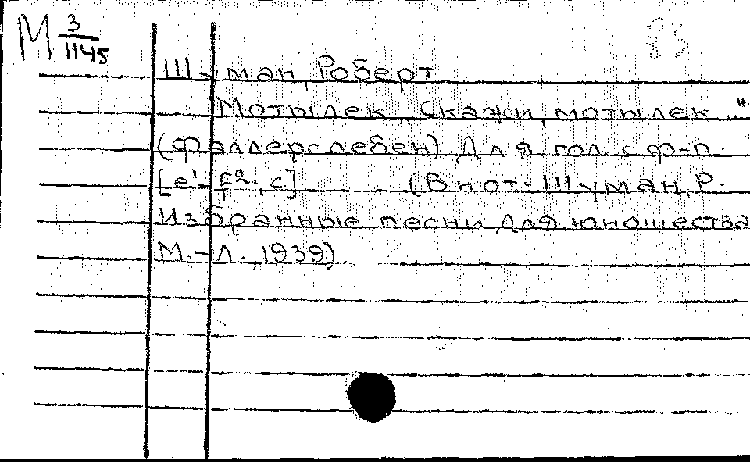 М 3/1145
Шуман, Роберт
Мотылек „Скажи, мотылек..."
(Фаллерслебен) Для гол. с ф-п.
[e¹-f²; c] (В нот.: Шуман, Р.
Избранные песни для юношества
М.-Л., 1939)